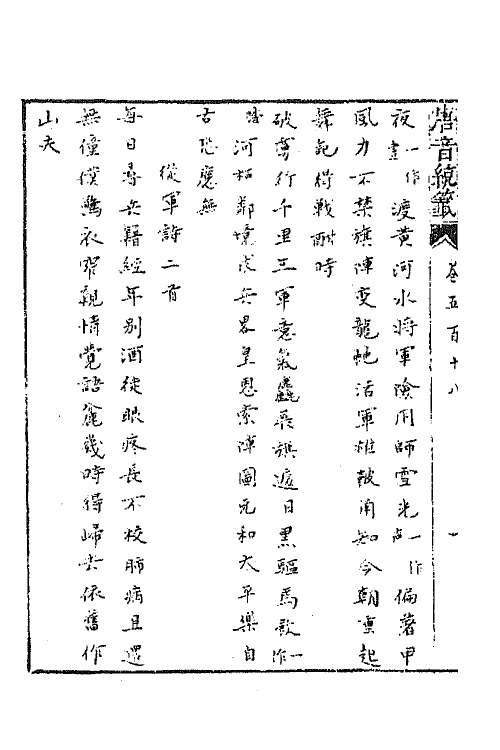 唐音統籤
卷五百十八
一
夜一作晝渡黃河水將軍險用師雪光一作片偏著甲
風力不禁旗陣變龍虵活軍雄鼓角知今朝重起
舞記得戰酣時
破虜行千里三軍意氣麤展旗遮日黑驅馬飲一作
踏河枯鄰境求兵畧皇恩索陣圖元和太平樂自
古恐應無
從軍詩二首
每日尋兵籍經年別酒徒眼疼長不校肺病且還
無僮僕驚衣窄親情覺語麤幾時得歸去依舊作
山夫